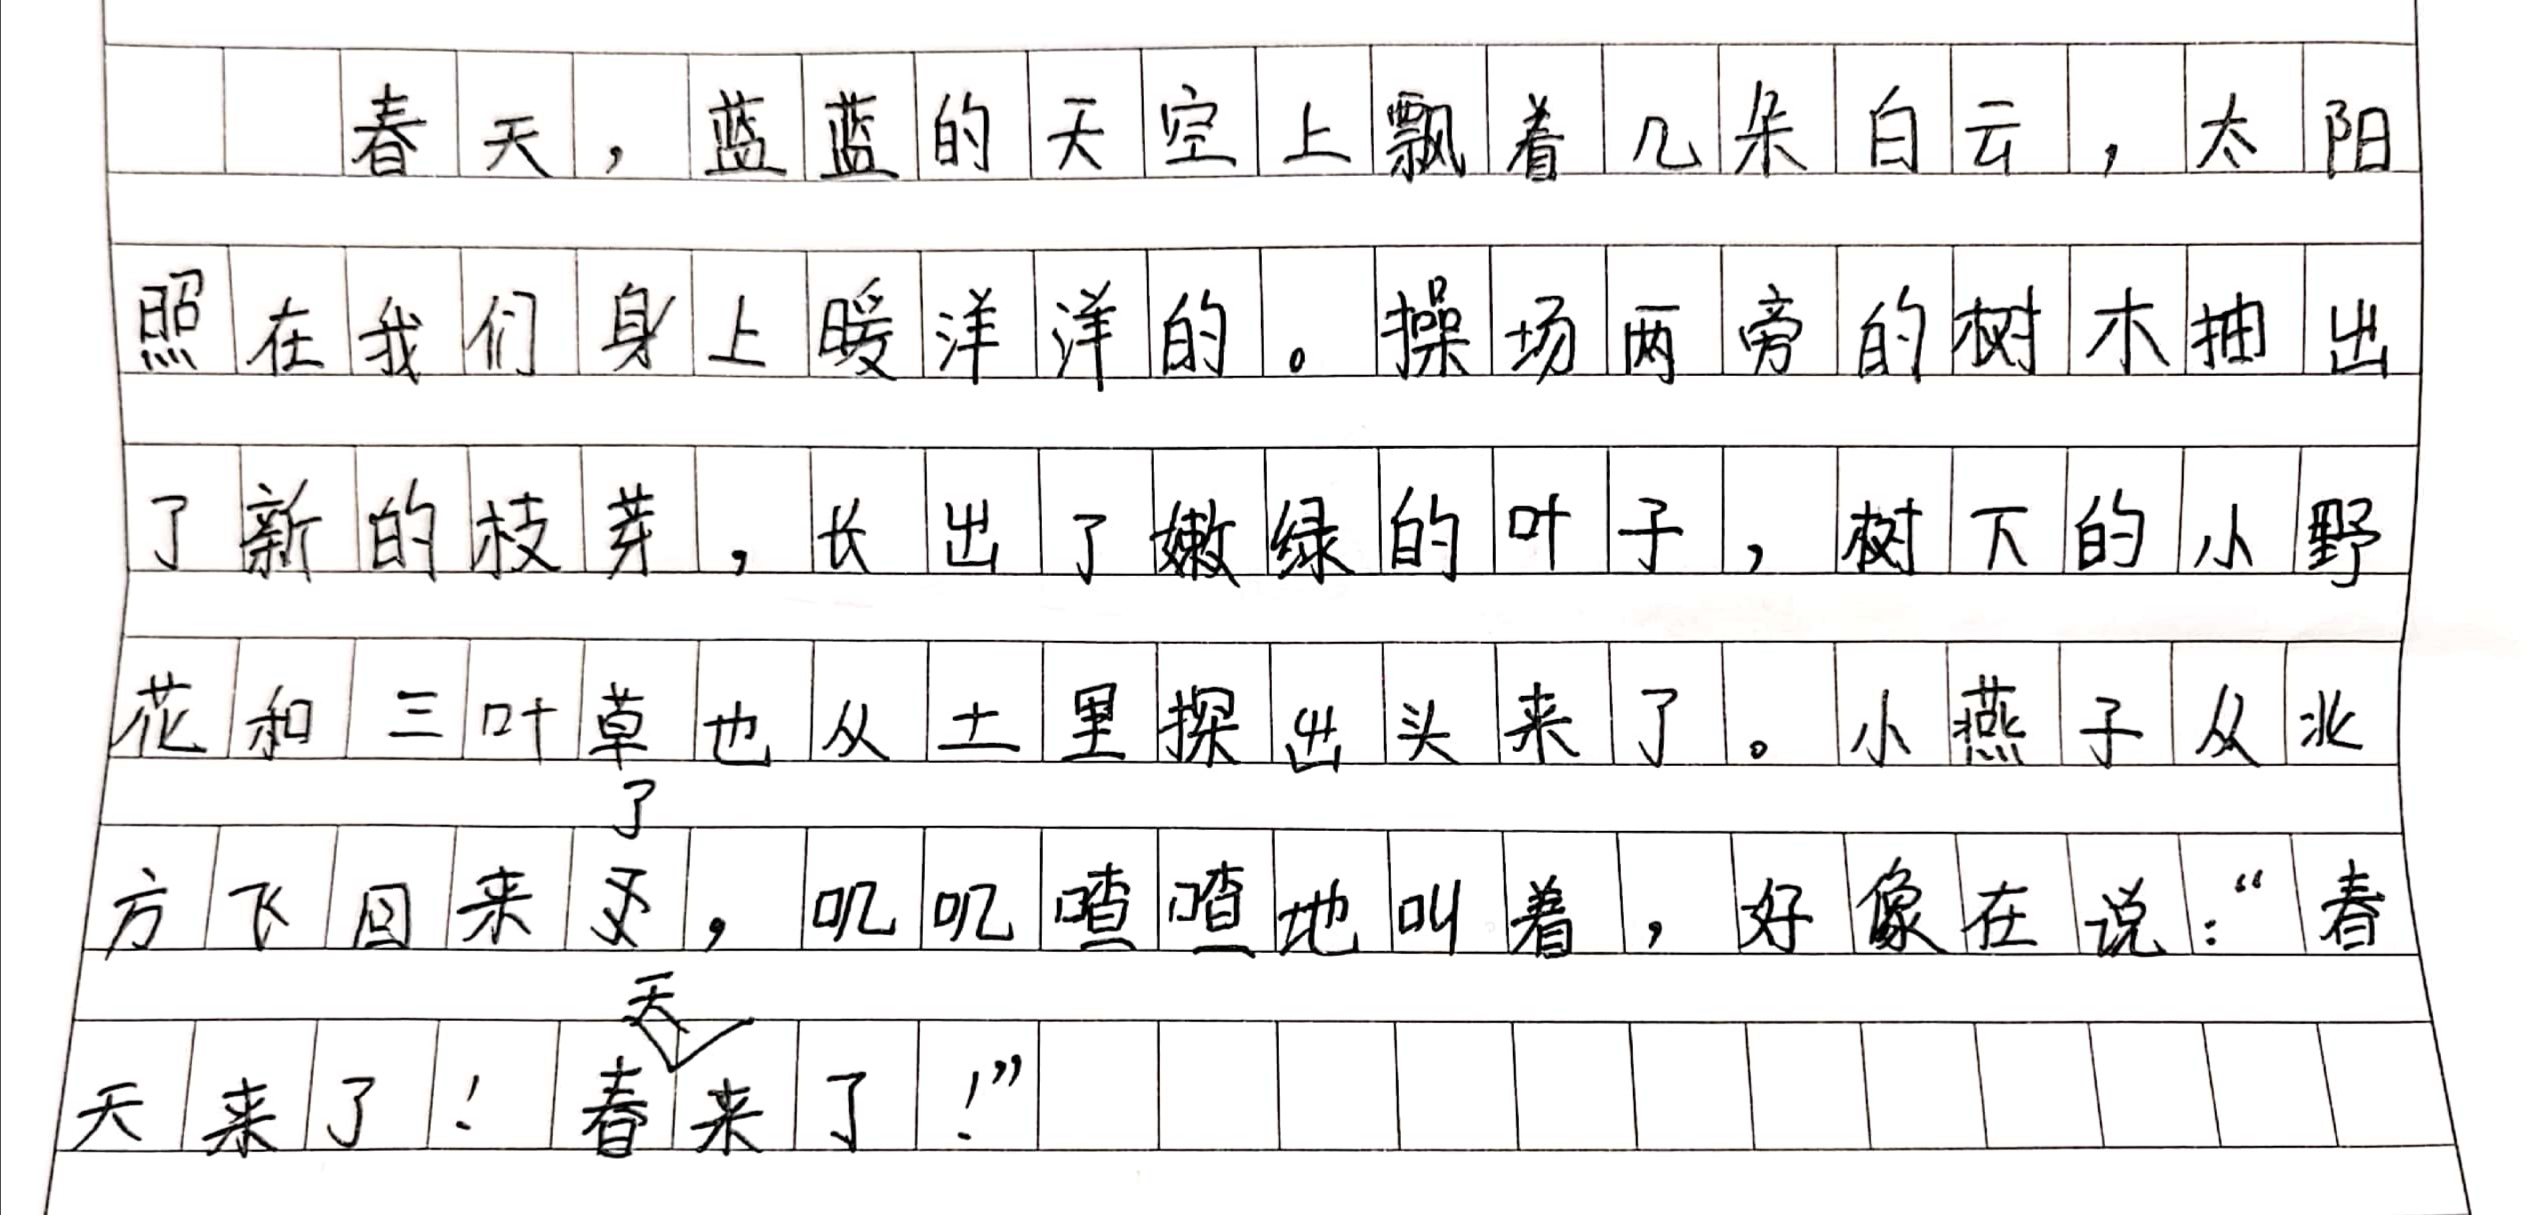 春天，蓝蓝的天空上飘着几朵白云，太阳
照在我们身上暖洋洋的。操场两旁的树木抽出
了新的枝芽，长出了嫩绿的叶子，树下的小野
花和三叶草也从土里探出头来了。小燕子从北
方飞回来了，叽叽喳喳地叫着，好像在说：“春
天来了！春天来了！”